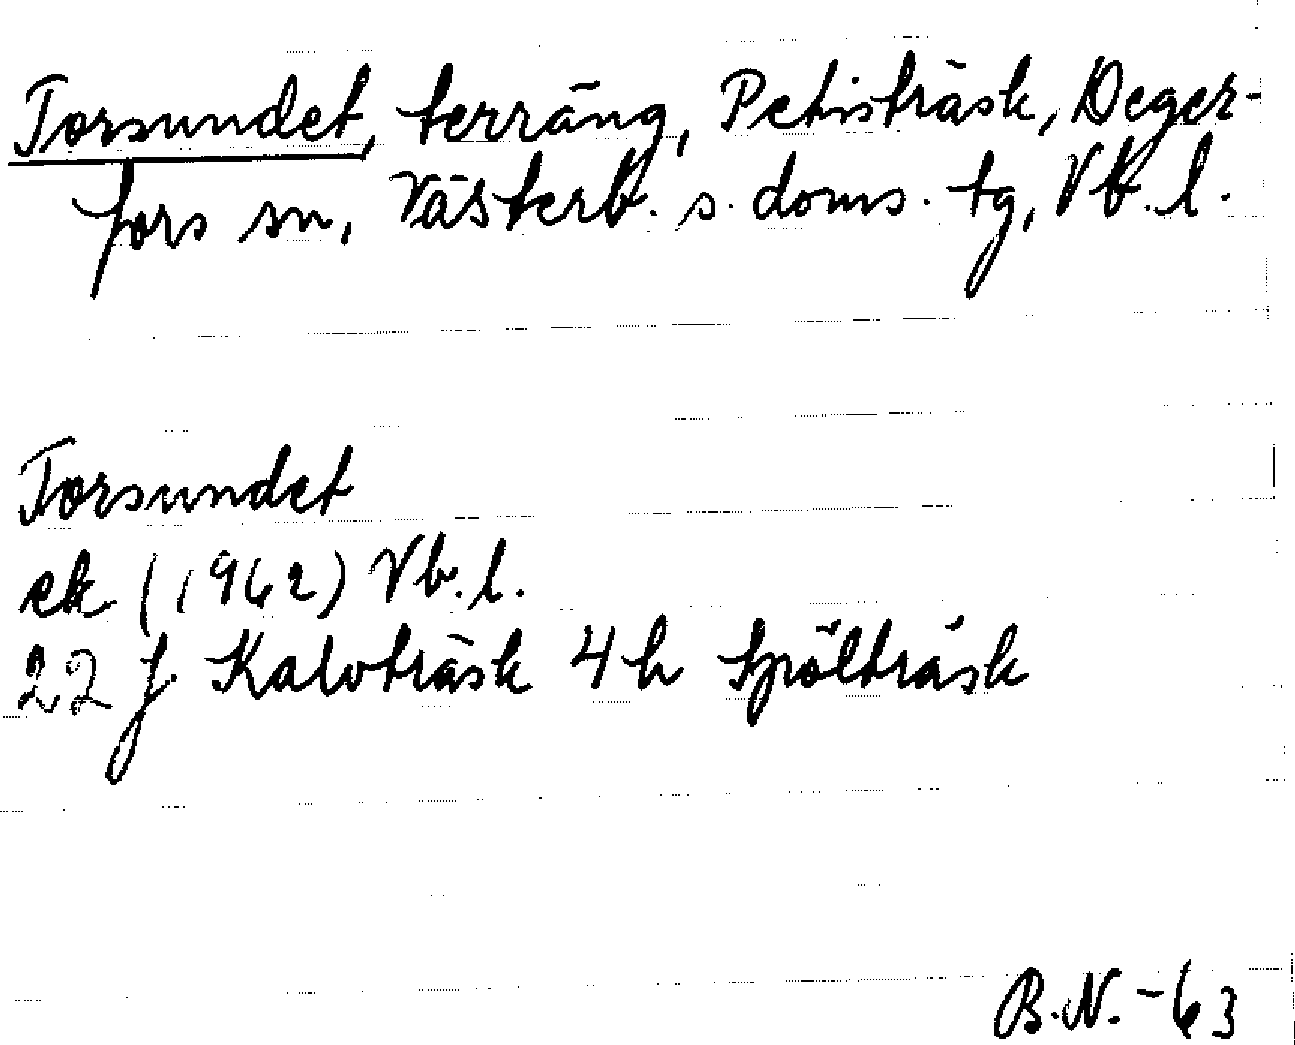 Torsundet, terräng, Petisträsk, Deger-
fors sn, Västerb. s. doms. tg, Vb. l.
Torsundet
ek (1962) Vb. l.
22 J Kalvträsk 4 h Spölträsk
B.N. -63